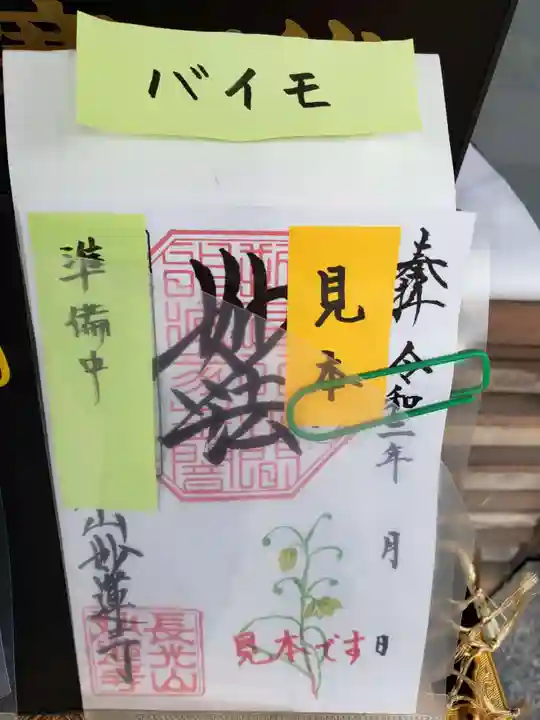 バイモ
準備中
見本
奉拝 令和二年 月 日
妙法
山妙蓮寺
長光山
妙蓮寺
見本です